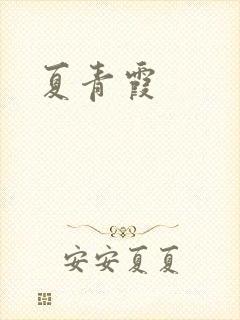 夏青霞
安安夏夏